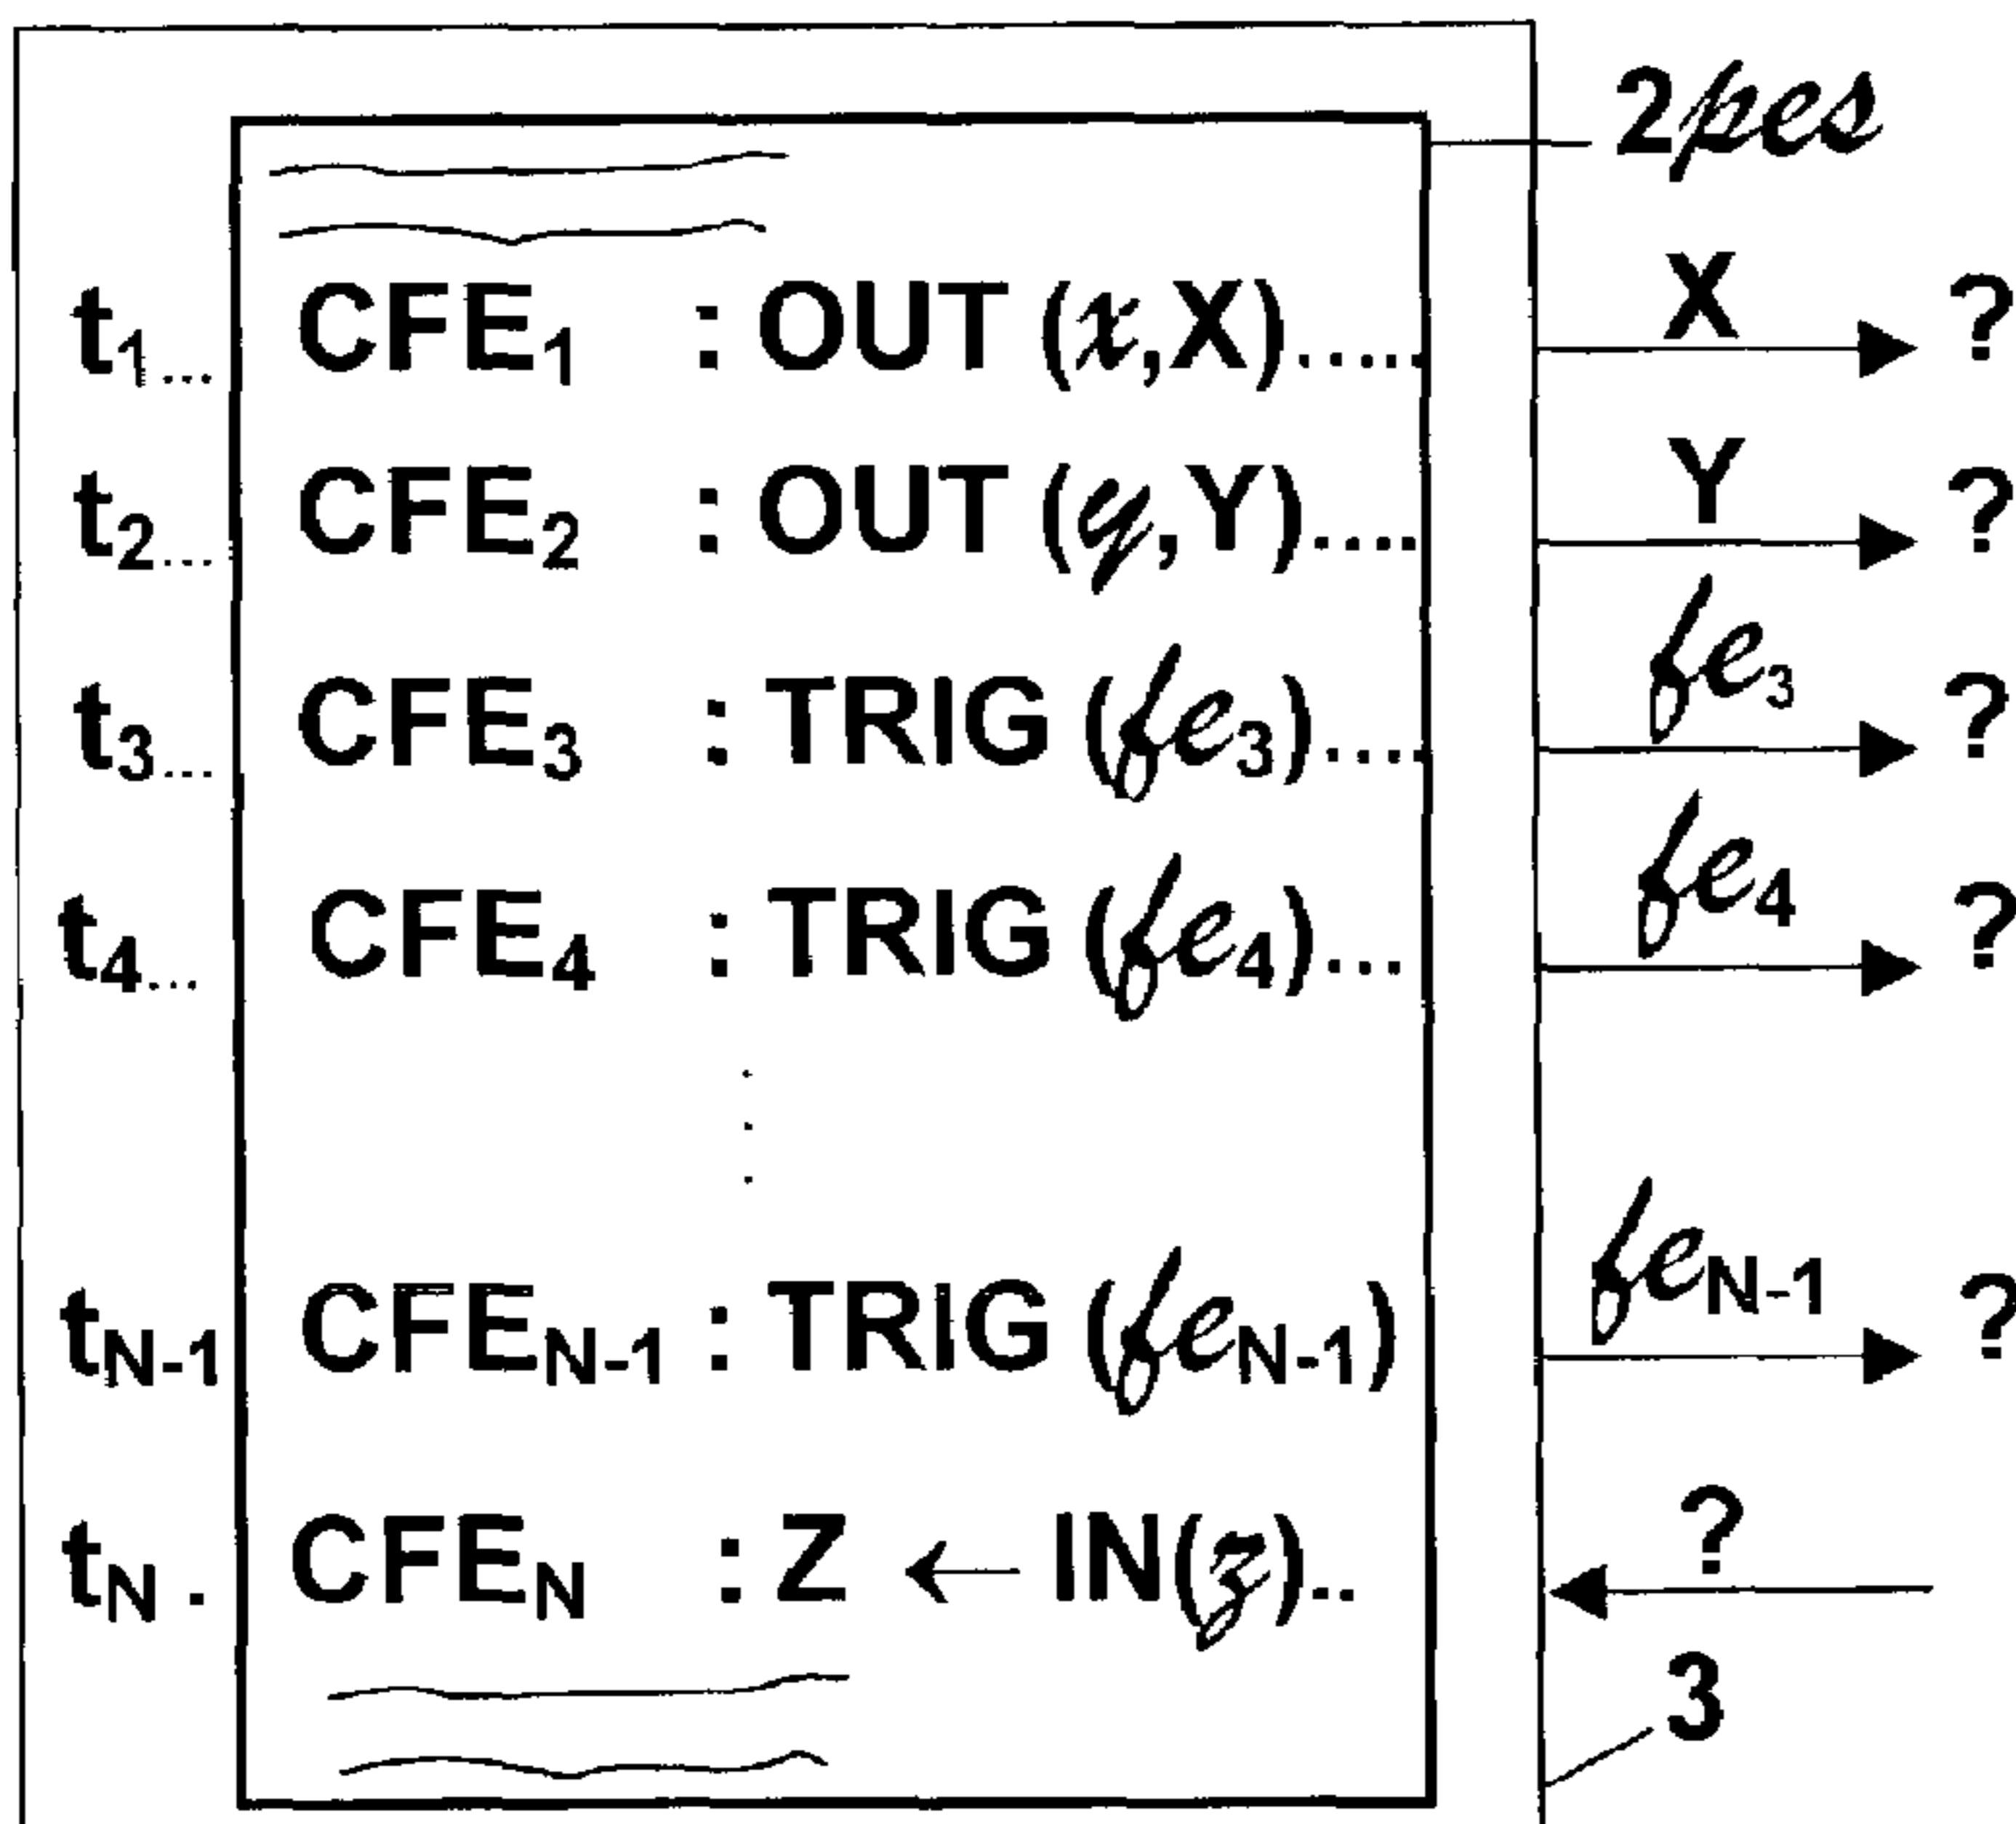 2pes
t1... CFE1 : OUT (x,X)..... X ?
t2... CFE2 : OUT (y,Y).... Y ?
t3... CFE3 : TRIG (fe3).... fe3 ?
t4... CFE4 : TRIG (fe4)... fe4 ?
.
.
.
tN-1 CFEN-1 : TRIG (feN-1) feN-1 ?
tN . CFEN : Z ← IN(z).. ?
3